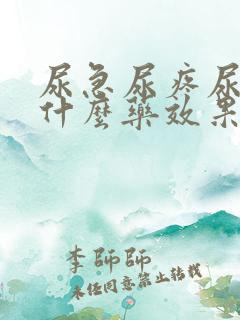 尿急尿疼尿
什麼藥效果
李師師
未經同意禁止轉載